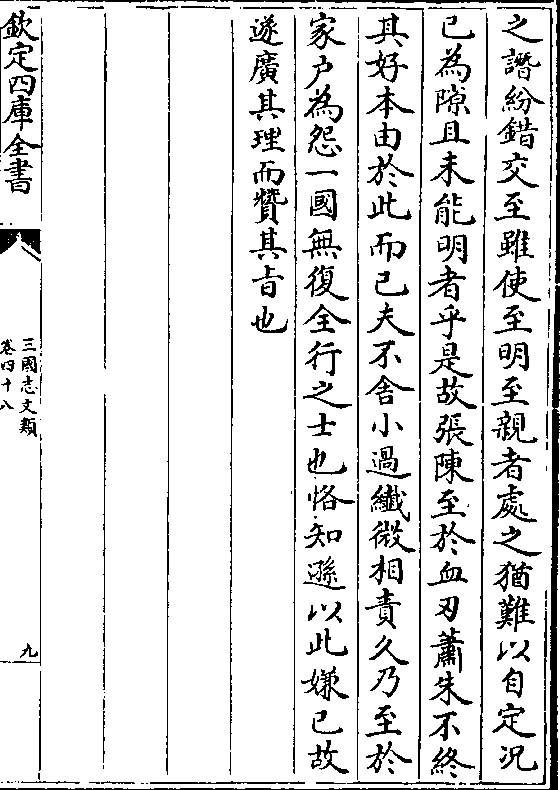 之譖紛錯交至雖使至明至親者處之猶難以自定況
已為隙且未能明者乎是故張陳至於血刃蕭朱不終
其好本由於此而已夫不舍小過纖微相責久乃至於
家户為怨一國無復全行之士也恪知遜以此嫌已故
遂廣其理而贊其㫖也
欽定四庫全書
三國志文類
卷四十八
九